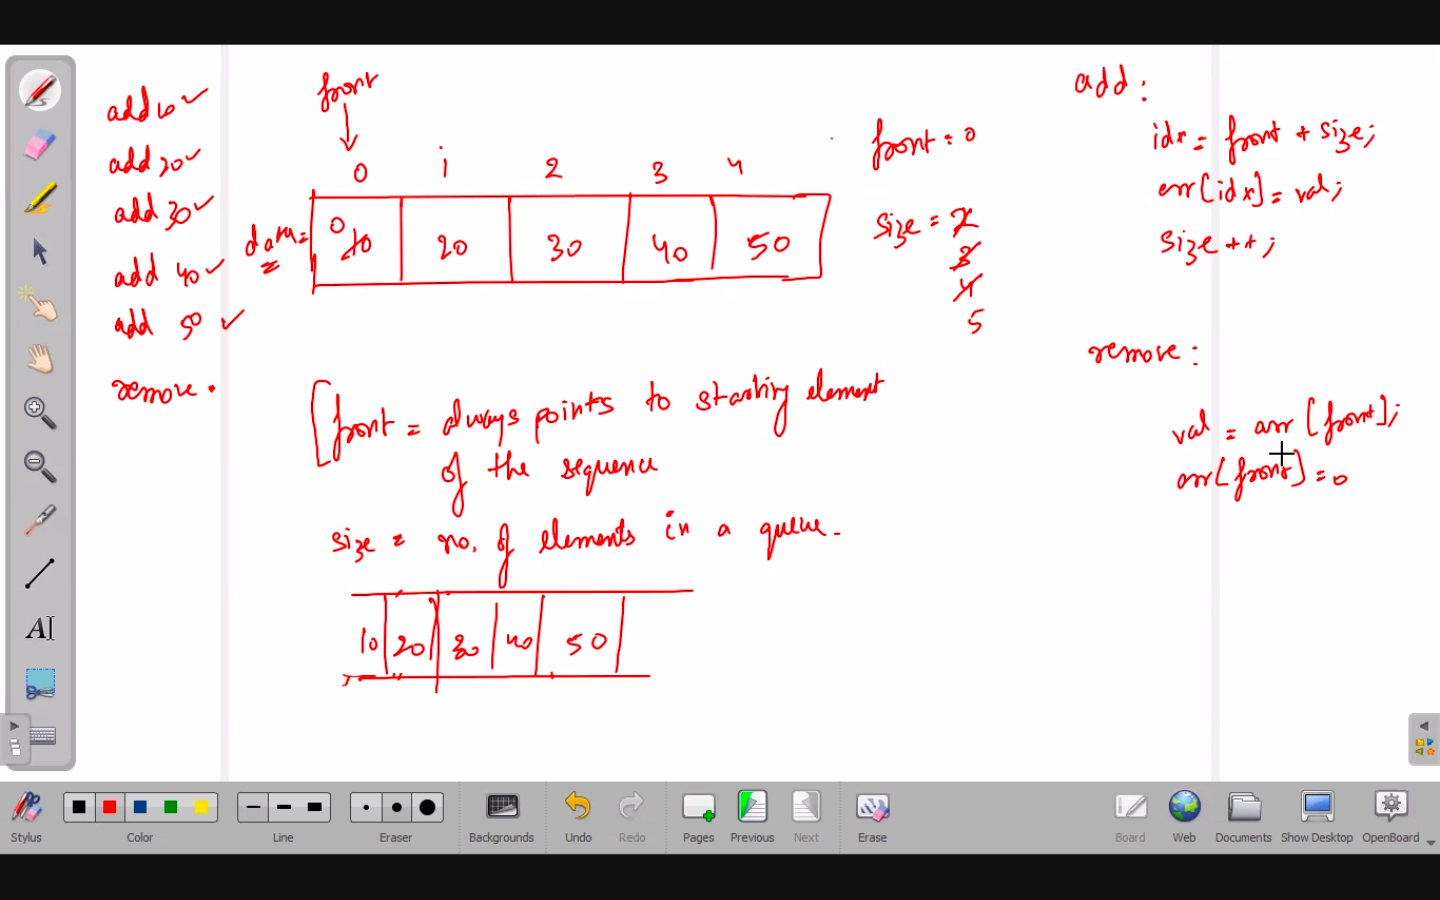 add 10
add 20
add 30
add 40
add 50
remove.
front
0 1 2 3 4
data = 0 10 20 30 40 50
front = 0
size = 2
3
4
5
[front = always points to starting element
of the sequence
size = no. of elements in a queue.
10 20 30 40 50
add:
idx = front + size;
arr[idx] = val;
size++;
remove:
val = arr[front];
arr[front] = 0
A
Stylus Color Line Eraser Backgrounds Undo Redo Pages Previous Next Erase Board Web Documents Show Desktop OpenBoard